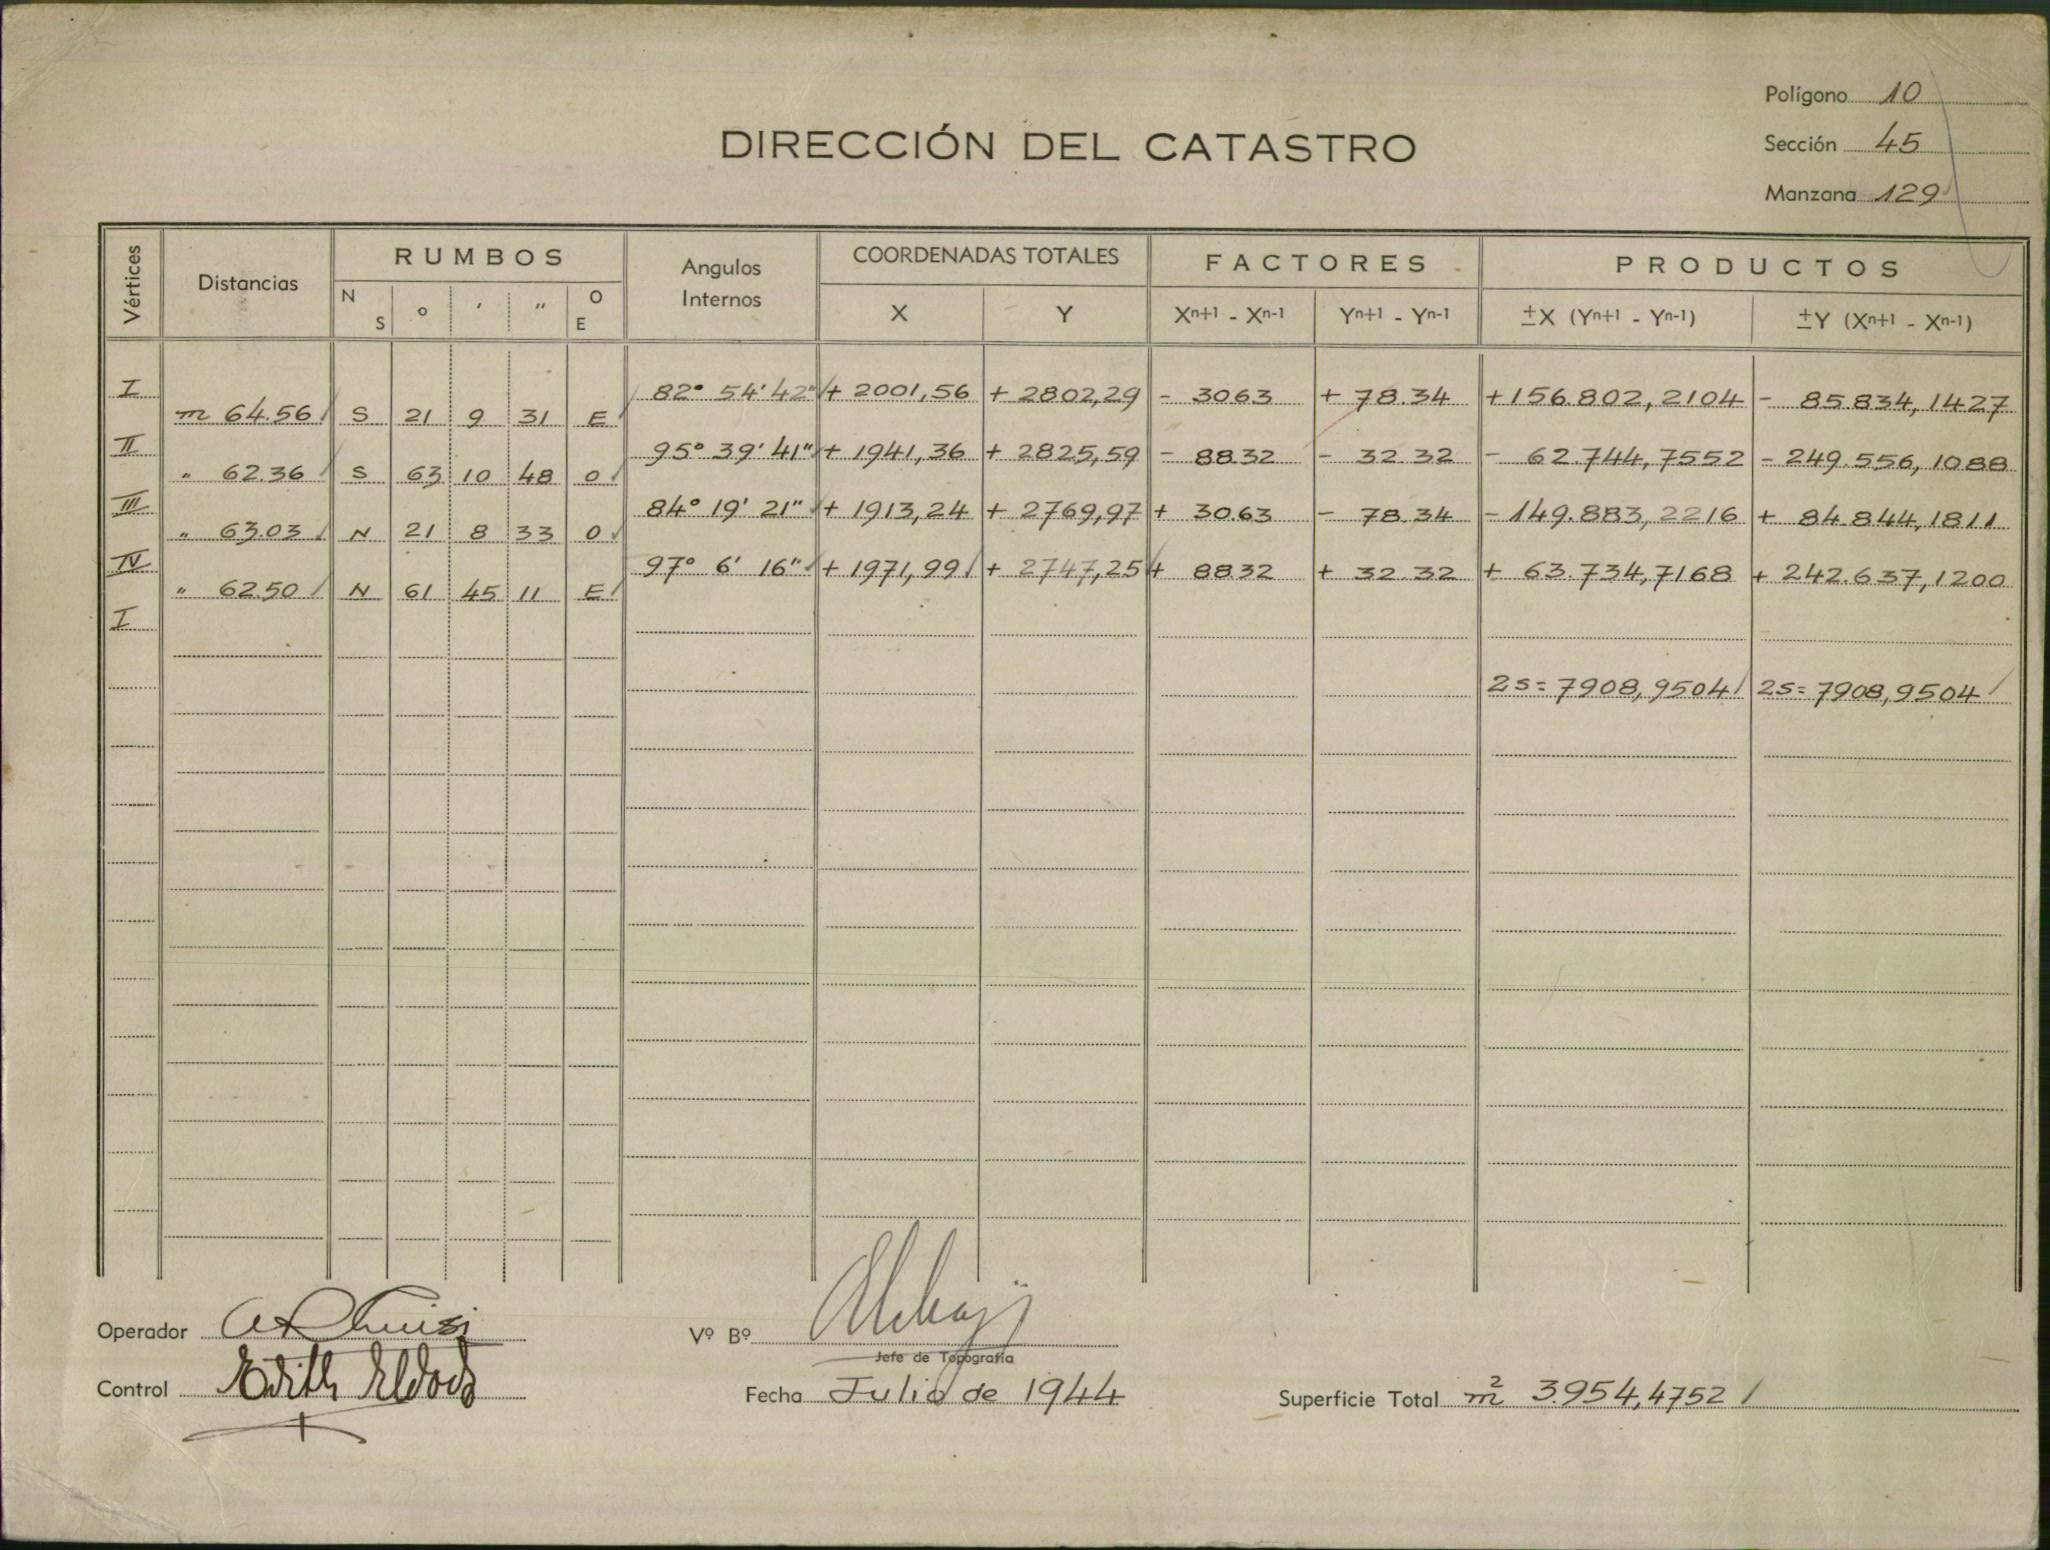 Polígono 10
DIRECCIÓN DEL CATASTRO
Sección 45
Manzana 129
Vértices Distancias RUMBOS Angulos Internos COORDENADAS TOTALES FACTORES PRODUCTOS
N S ° ′ ″ O E X Y Xⁿ⁺¹ - Xⁿ⁻¹ Yⁿ⁺¹ - Yⁿ⁻¹ ±X (Yⁿ⁺¹ - Yⁿ⁻¹) ±Y (Xⁿ⁺¹ - Xⁿ⁻¹)
I 82° 54' 42" + 2001,56 + 2802,29 - 30.63 + 78.34 +156.802,2104 - 85.834,1427
m 64.56 S 21 9 31 E
II 95° 39' 41" + 1941,36 + 2825,59 - 88.32 - 32.32 - 62.744,7552 - 249.556,1088
" 62.36 S 63 10 48 O
III 84° 19' 21" + 1913,24 + 2769,97 + 30.63 - 78.34 - 149.883,2216 + 84.844,1811
" 63.03 N 21 8 33 O
IV 97° 6' 16" + 1971,99 + 2747,25 + 88.32 + 32.32 + 63.734,7168 + 242.637,1200
" 62.50 N 61 45 11 E
I
2S= 7908,9504 2S= 7908,9504
Operador
Vº Bº
Jefe de Topografía
Control Edith
Fecha Julio de 1944
Superficie Total m² 3.954,4752